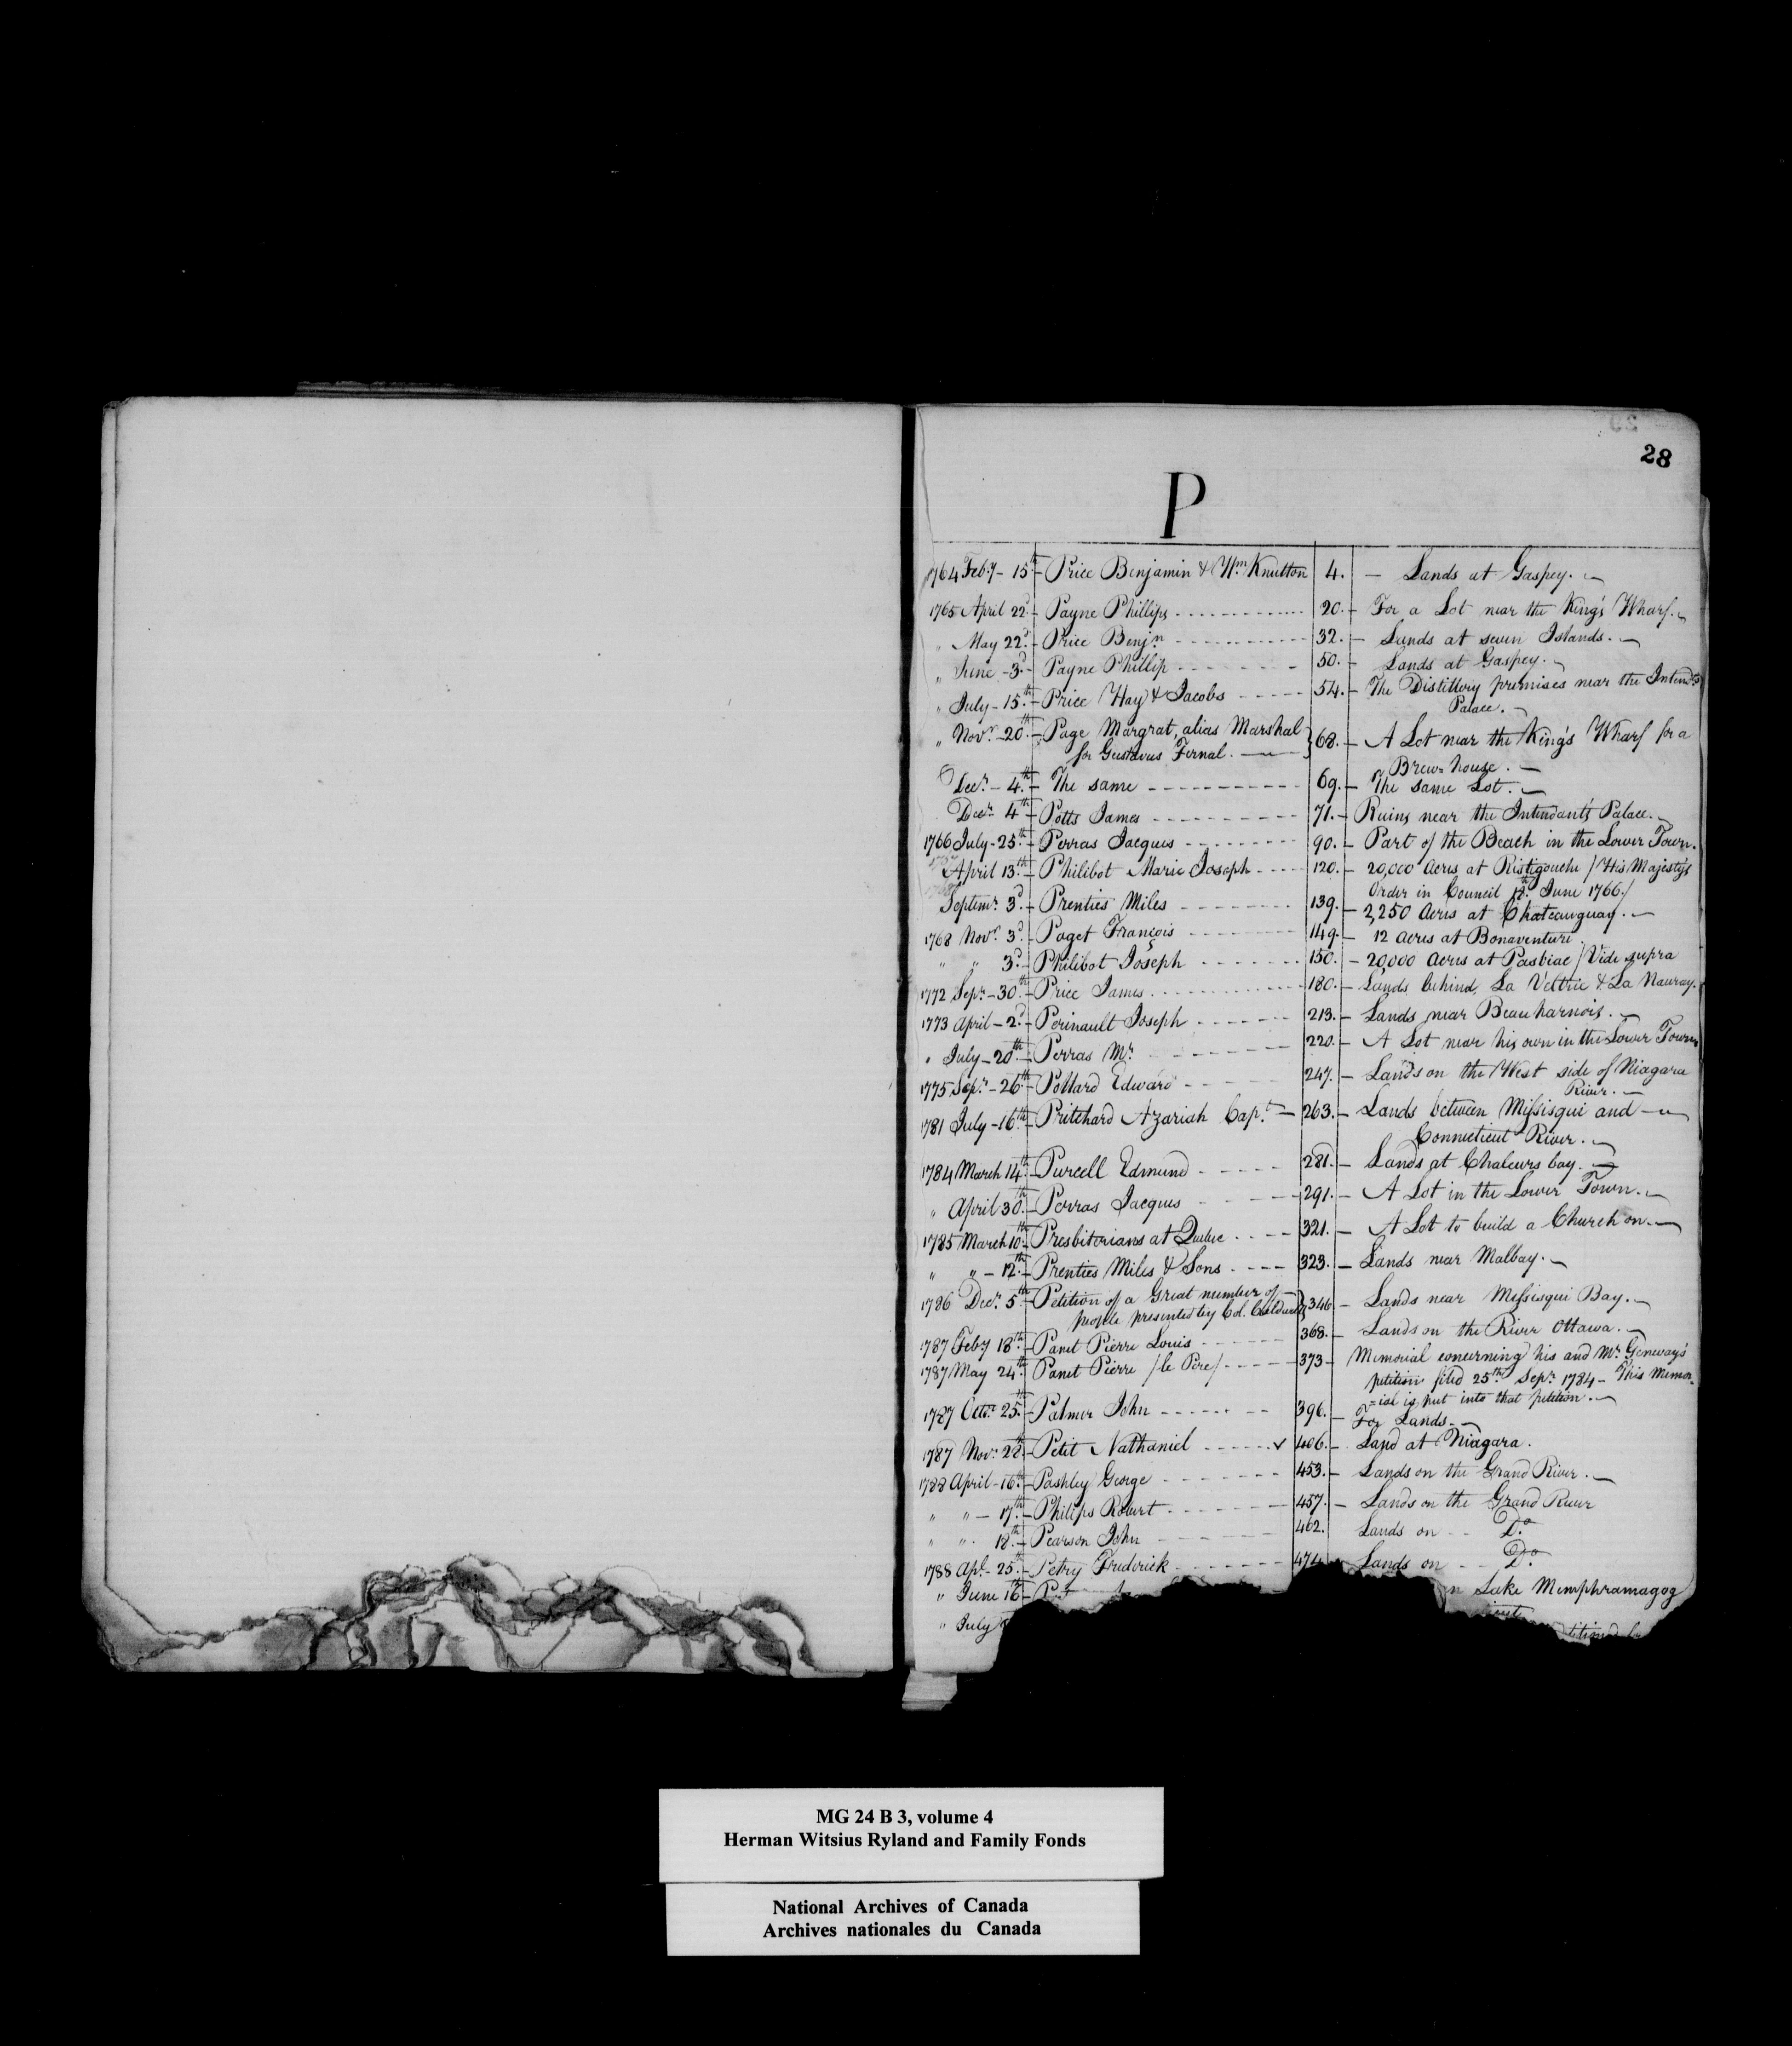 28
P
1764 Feby - 15th - Price Benjamin & Wm Knutton 4. - Lands at Gaspey.
1765 April 22d - Payne Phillips 20. - For a Lot near the King's Wharf.
" May 22d - Price Benjn 32. - Lands at seven Islands.
" June - 3d - Payne Phillip 50. - Lands at Gaspey.
" July - 15th - Price Hay & Jacobs 54. - The Distillery premises near the Intendts
Palace.
" Novr - 20th - Page Margrat, alias Marshal } 68. - A Lot near the King's Wharf for a
for Gustavus Fernal.
Brew=house.
Decr - 4th - The same 69. - The same Lot.
Decr 4th - Potts James 71. - Ruins near the Intendant's Palace.
1766 July - 25th - Perras Jacques 90. - Part of the Beach in the Lower Town.
April 13th - Philibot Marie Joseph 120. - 20,000 Acres at Ristigouche / His Majesty's
Order in Council 18th June 1766. /
Septemr 3d - Prenties Miles 139. - 2,250 Acres at Chateauguay.
1768 Novr 3d - Paget François 149. - 12 Acres at Bonaventure.
" " 3d - Philibot Joseph 150. - 20,000 Acres at Pasbiac / Vide supra
1772 Sepr - 30th - Price James 180. - Lands behind La Valtrie & La Nauray.
1773 April - 2d - Perinault Joseph 213. - Lands near Beauharnois.
" July - 20th - Perras Mr 220. - A Lot near his own in the Lower Town
1775 Sepr - 26th - Pollard Edward 247. - Lands on the West side of Niagara
River.
1781 July - 16th - Pritchard Azariah Capt 263. - Lands between Missisqui and
Connecticut River.
1784 March 14th - Purcell Edmund 281. - Lands at Chaleurs bay.
" April 30th - Perras Jacques 291. - A Lot in the Lower Town.
1785 March 10th - Presbiterians at Quebec 321. - A Lot to build a Church on.
" " - 12th - Prenties Miles & Sons 323. - Lands near Malbay.
1786 Decr 5th - Petition of a Great number of } 346 - Lands near Missisqui Bay.
people presented by Col. Caldwell
1787 Feby 18th - Panet Pierre Louis 368. - Lands on the River Ottawa.
1787 May 24th - Panet Pierre / le Pere / 373 - Memorial concerning his and Mr Geneway's
petition filed 25th Sepr 1784 - This Memor-
=ial is put into that petition.
1787 Octr 25th - Palmer John 396. - For Lands.
1787 Novr 28th - Petit Nathaniel 406. - Land at Niagara.
1788 April - 16th - Pashley George 453. - Lands on the Grand River.
" " - 17th - Philips Robert 457. - Lands on the Grand River
" " 18th - Pearson John 462. Lands on Do
1788 Apl - 25th - Petry Frederick 474 Lands on Do
" June 16 Lake Memphramagog
" July
MG 24 B 3, volume 4
Herman Witsius Ryland and Family Fonds
National Archives of Canada
Archives nationales du Canada